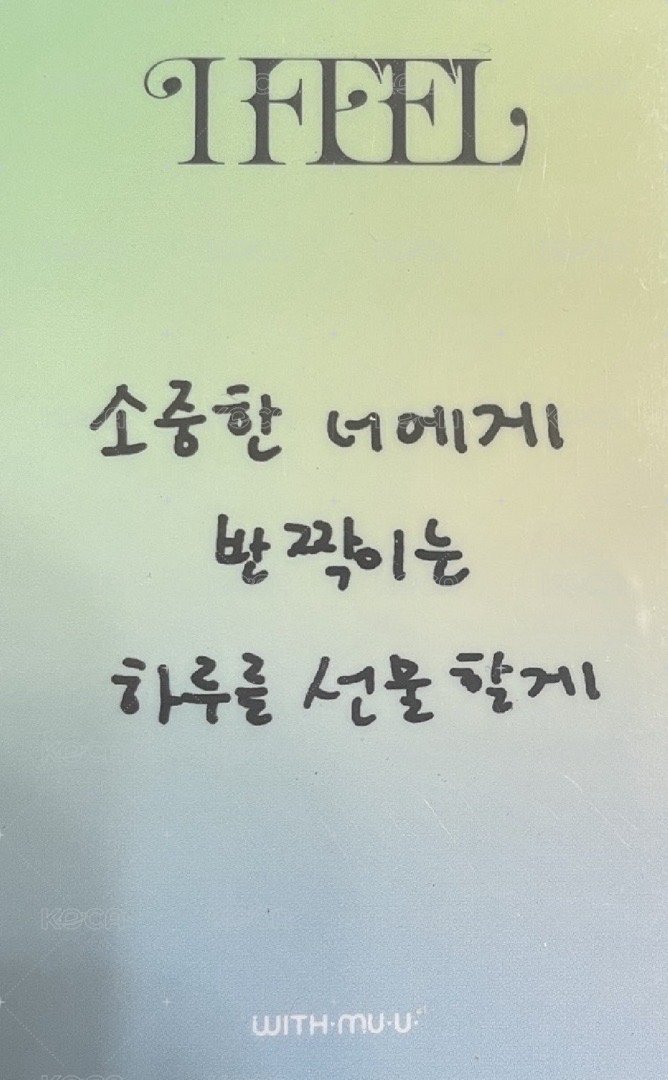 I FEEL
소중한 너에게
반짝이는
하루를 선물할게
KOCA
WITH·MU·U·